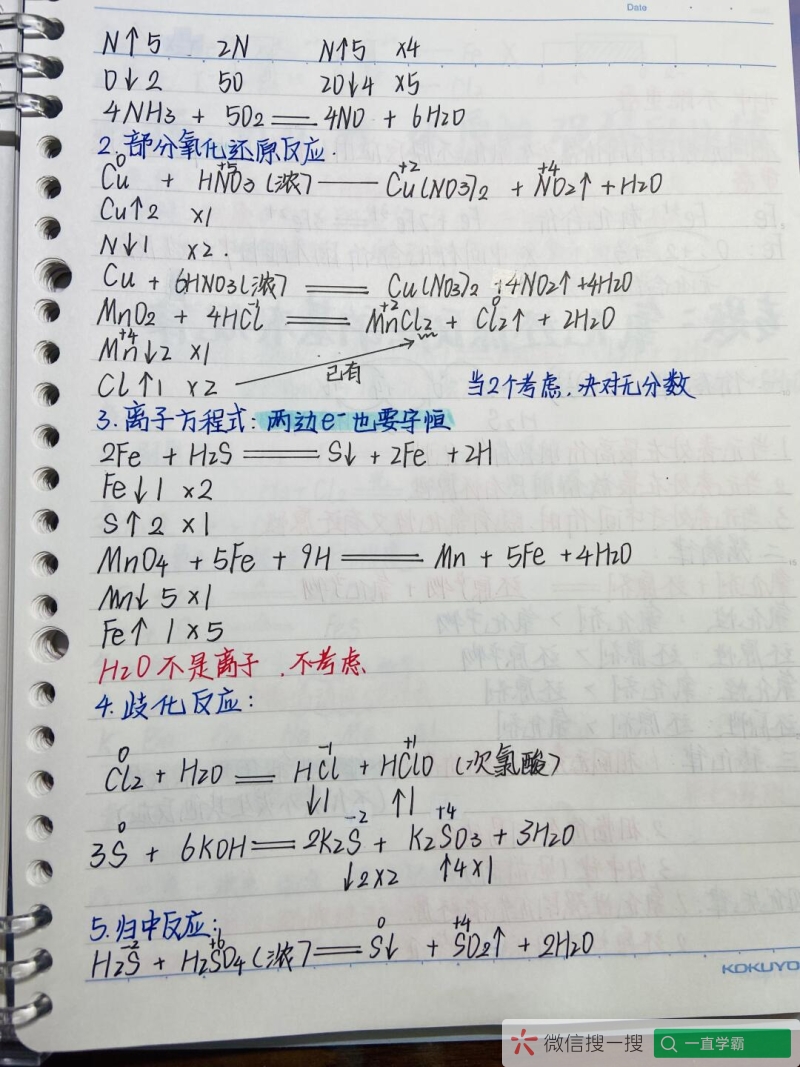 Date
N↑5 2N N↑5 ×4
O↓2 5O 2O↓4 ×5
4NH3 + 5O2 == 4NO + 6H2O
2.部分氧化还原反应.
0 +5 +2 +4
Cu + HNO3(浓) —— Cu(NO3)2 + NO2↑ + H2O
Cu↑2 ×1
N↓1 ×2.
Cu + 6HNO3(浓) == Cu(NO3)2 + 4NO2↑ + 4H2O
-1 +2 0
MnO2 + 4HCl == MnCl2 + Cl2↑ + 2H2O
+4
Mn↓2 ×1
Cl↑1 ×2 已有 当2个考虑.决对无分数
3.离子方程式:两边e⁻也要守恒
2Fe + H2S == S↓ + 2Fe + 2H
Fe↓1 ×2
S↑2 ×1
MnO4 + 5Fe + 9H == Mn + 5Fe + 4H2O
Mn↓5 ×1
Fe↑1 ×5
H2O不是离子.不考虑
4.歧化反应:
0 -1 +1
Cl2 + H2O == HCl + HClO (次氯酸)
↓1 ↑1
0 -2 +4
3S + 6KOH == 2K2S + K2SO3 + 3H2O
↓2×2 ↑4×1
5.归中反应:
-2 +6 0 +4
H2S + H2SO4(浓) == S↓ + SO2↑ + 2H2O
KOKUYO
微信搜一搜 一直学霸